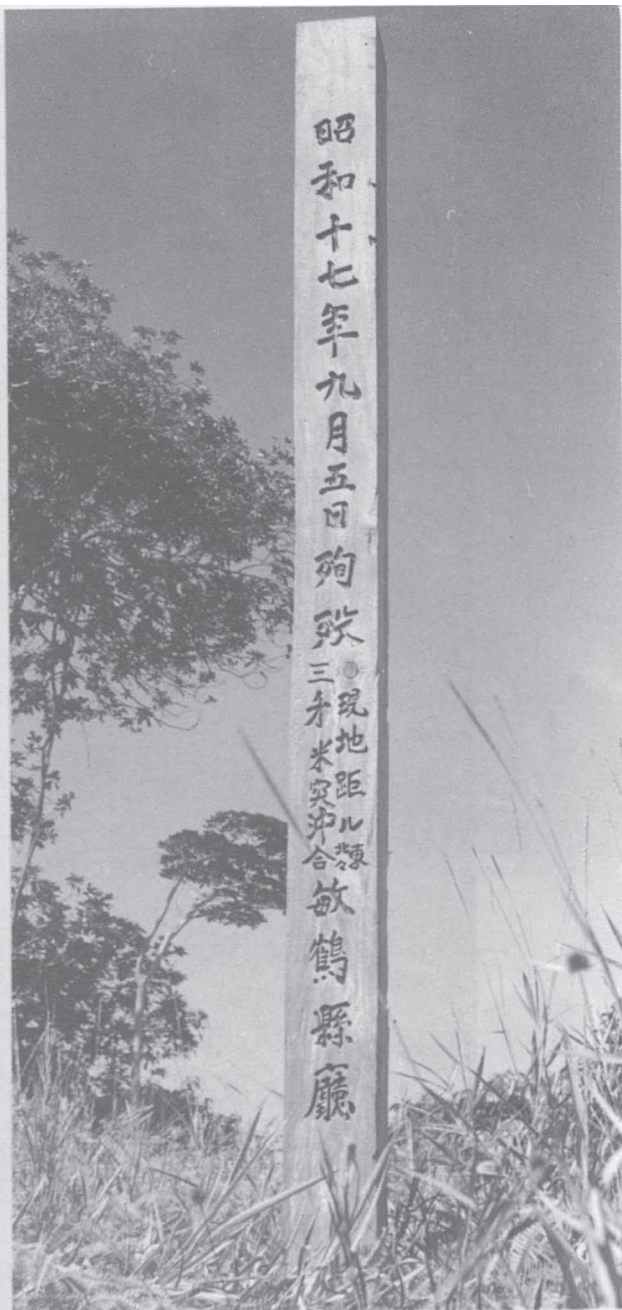 昭和十七年九月五日殉歿
現地距ル北々東
三千米突沖合
敏鶴縣廳